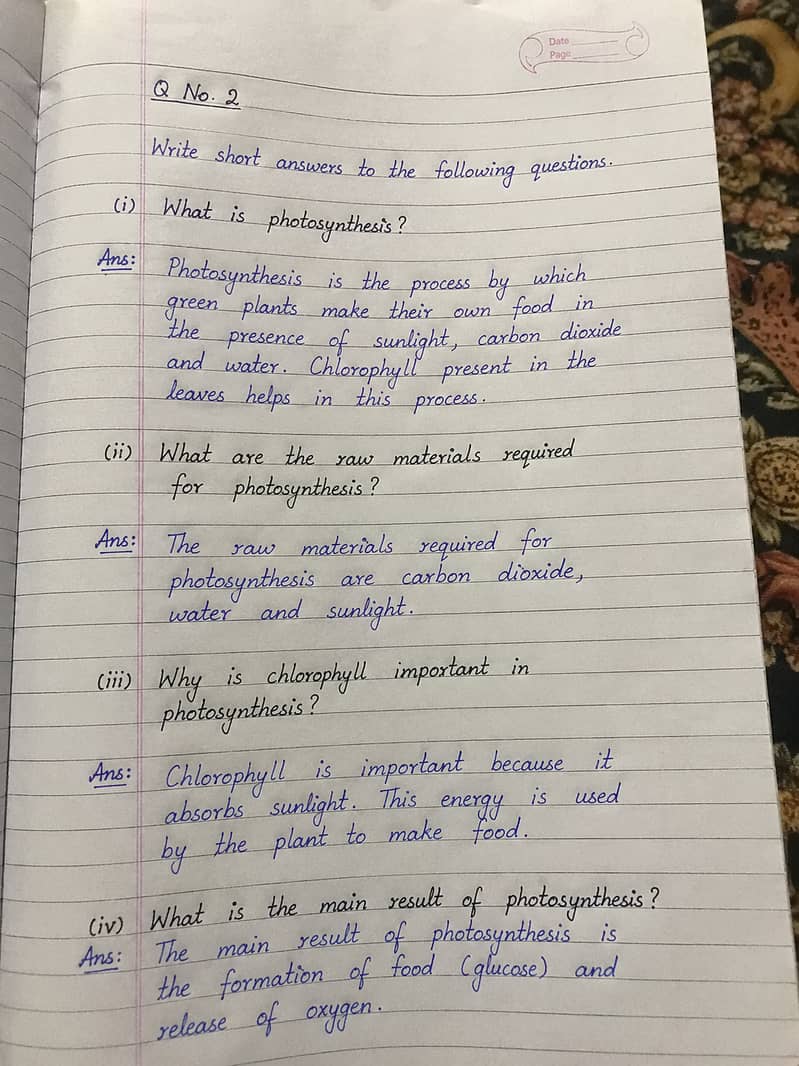 Date
Page
Q No. 2
Write short answers to the following questions.
(i) What is photosynthesis?
Ans: Photosynthesis is the process by which
green plants make their own food in
the presence of sunlight, carbon dioxide
and water. Chlorophyll present in the
leaves helps in this process.
(ii) What are the raw materials required
for photosynthesis?
Ans: The raw materials required for
photosynthesis are carbon dioxide,
water and sunlight.
(iii) Why is chlorophyll important in
photosynthesis?
Ans: Chlorophyll is important because it
absorbs sunlight. This energy is used
by the plant to make food.
(iv) What is the main result of photosynthesis?
Ans: The main result of photosynthesis is
the formation of food (glucose) and
release of oxygen.